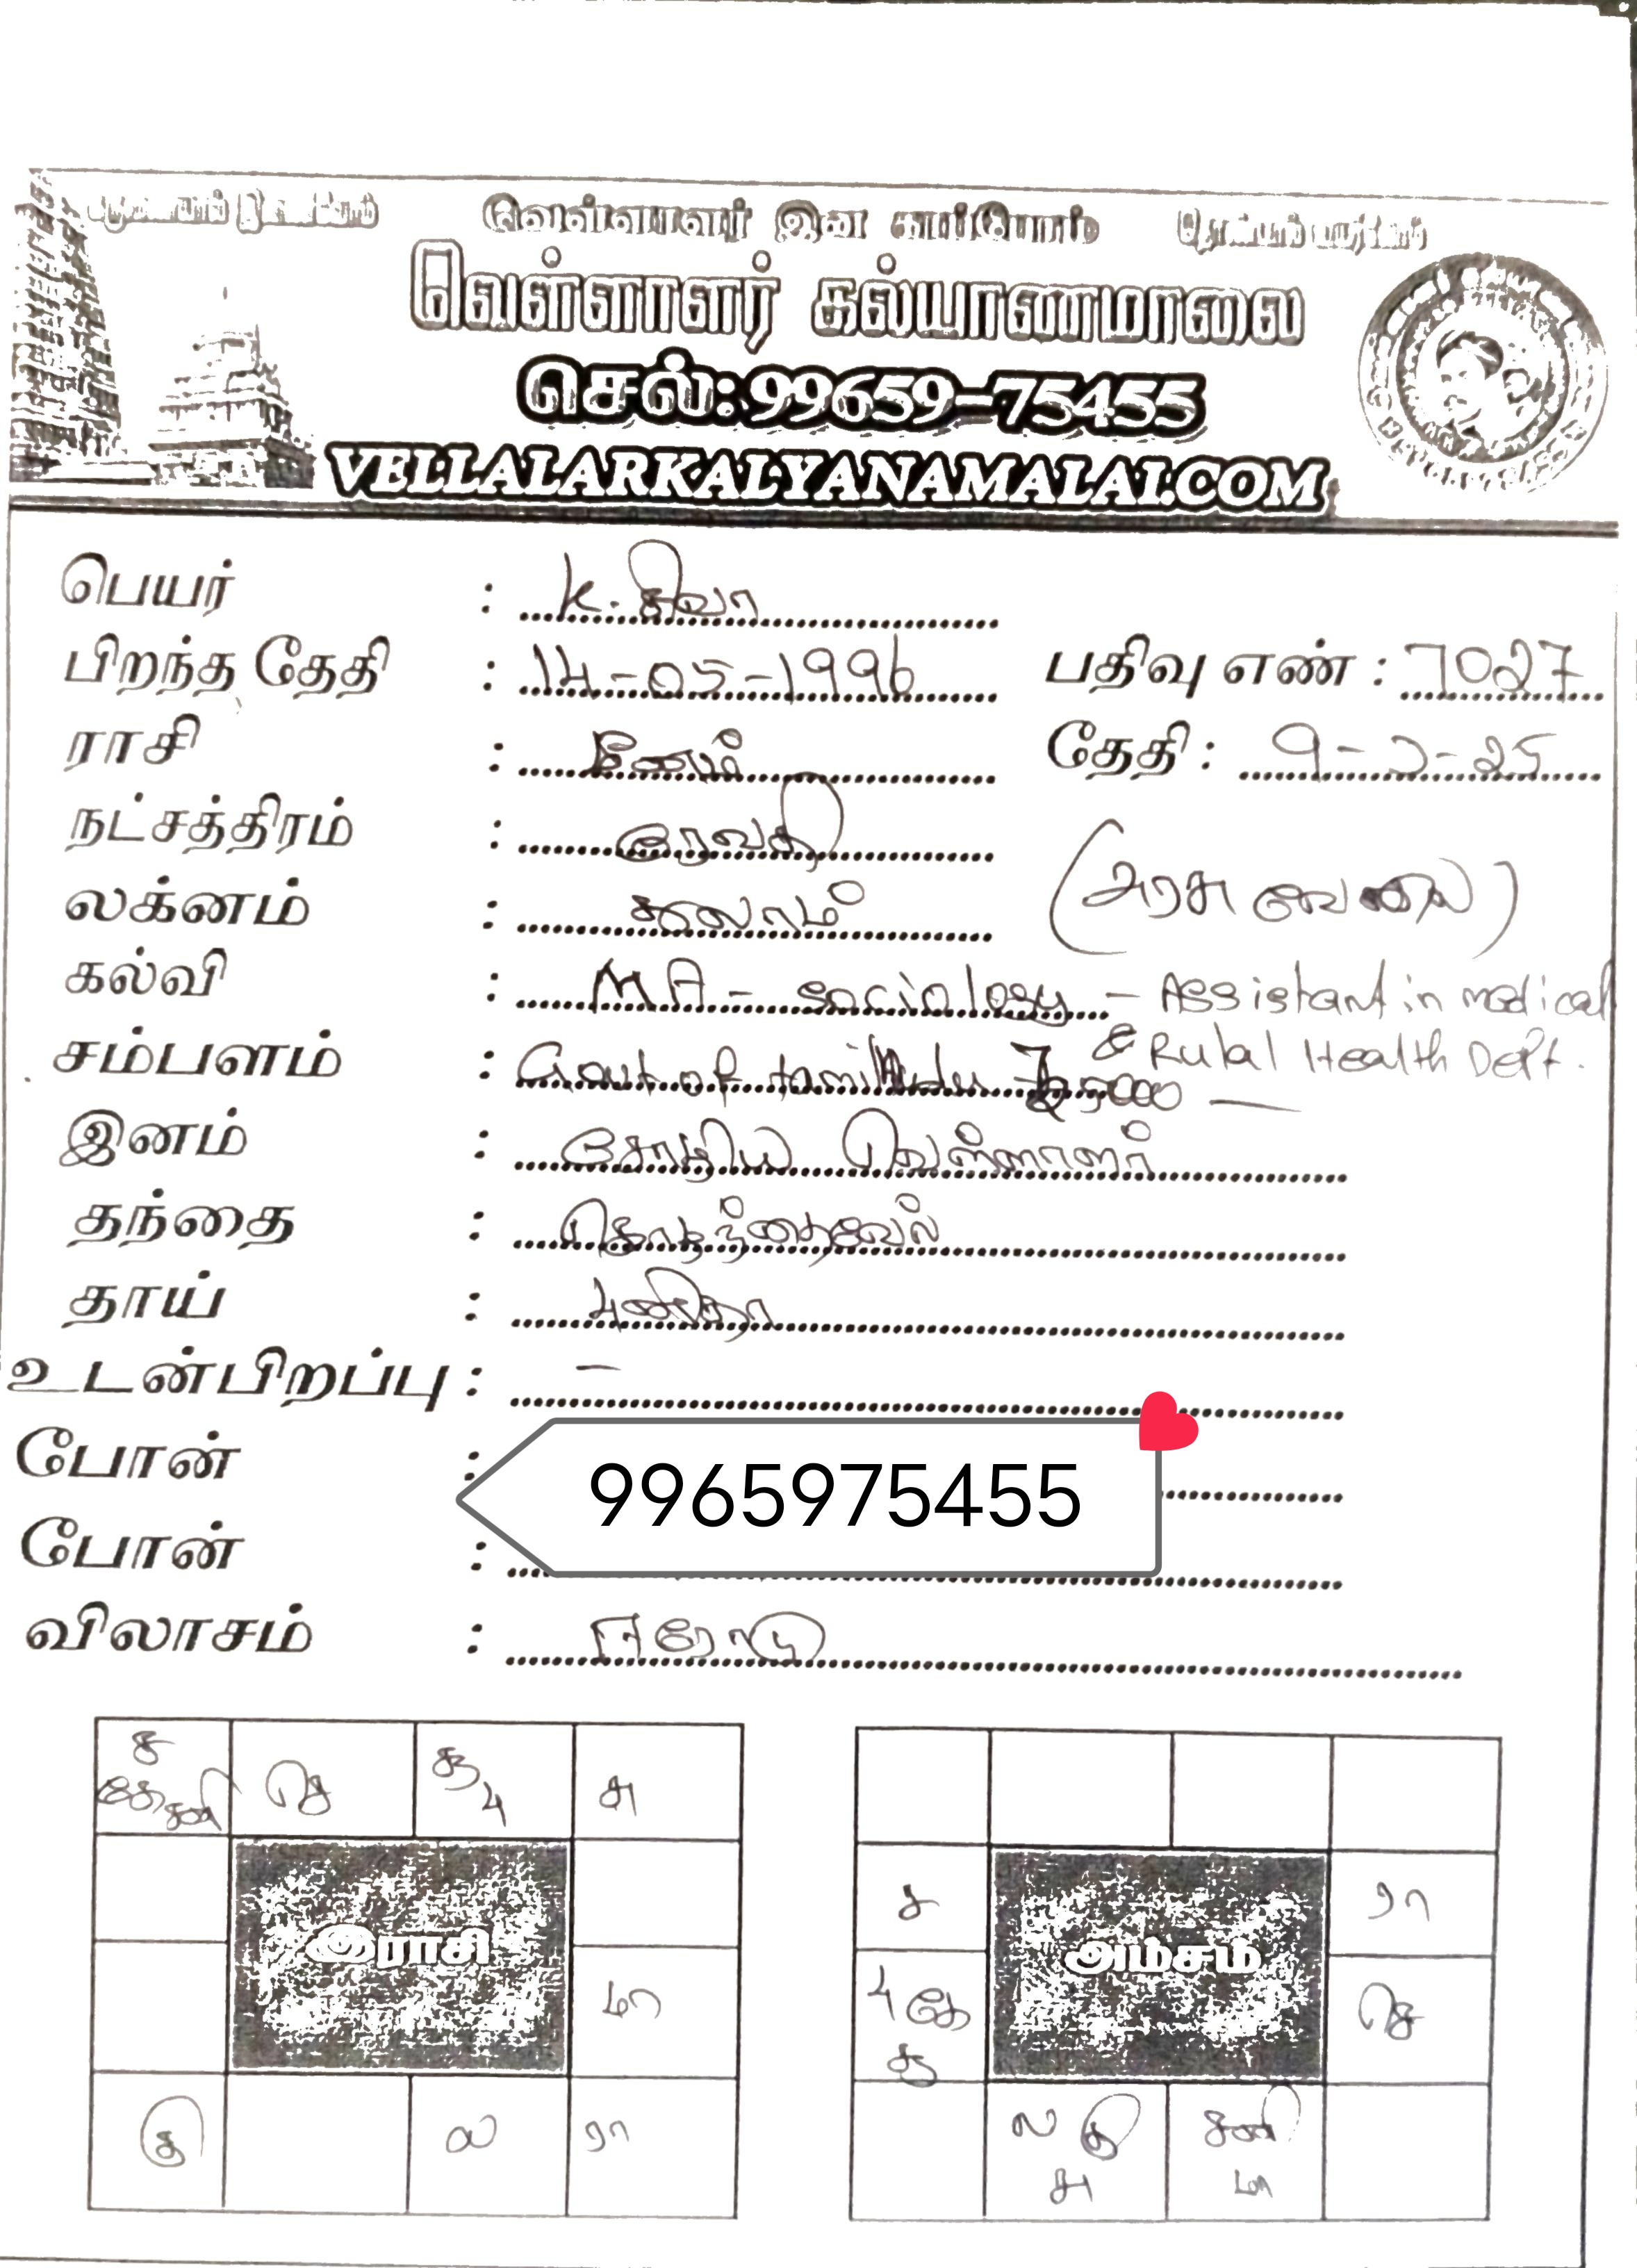 வெள்ளாளர் இன காப்போம்
வெள்ளாளர் கல்யாணமாலை
செல்: 99659-75455
VELLALARKALYANAMALAI.COM
பெயர் : K. சிவா
பிறந்த தேதி : 14-05-1996 பதிவு எண் : 7027
ராசி : மீனம் தேதி : 9-2-25
நட்சத்திரம் : ரேவதி
லக்னம் : துலாம் (அரசு வேலை)
கல்வி : MA - sociology - Assistant in medical
& Rural Health Dept.
சம்பளம் : Govt of tamilNadu
இனம் : சோழிய வெள்ளாளர்
தந்தை : கொழந்தைவேல்
தாய் : புனிதா
உடன்பிறப்பு : -
போன் : 9965975455
போன் :
விலாசம் : ஈரோடு
ச
கே சனி செ சூ பு சு
இராசி
மா
கு ல ரா
ச ரா
அம்சம்
பு கே சூ செ
ல கு சு சனி மா